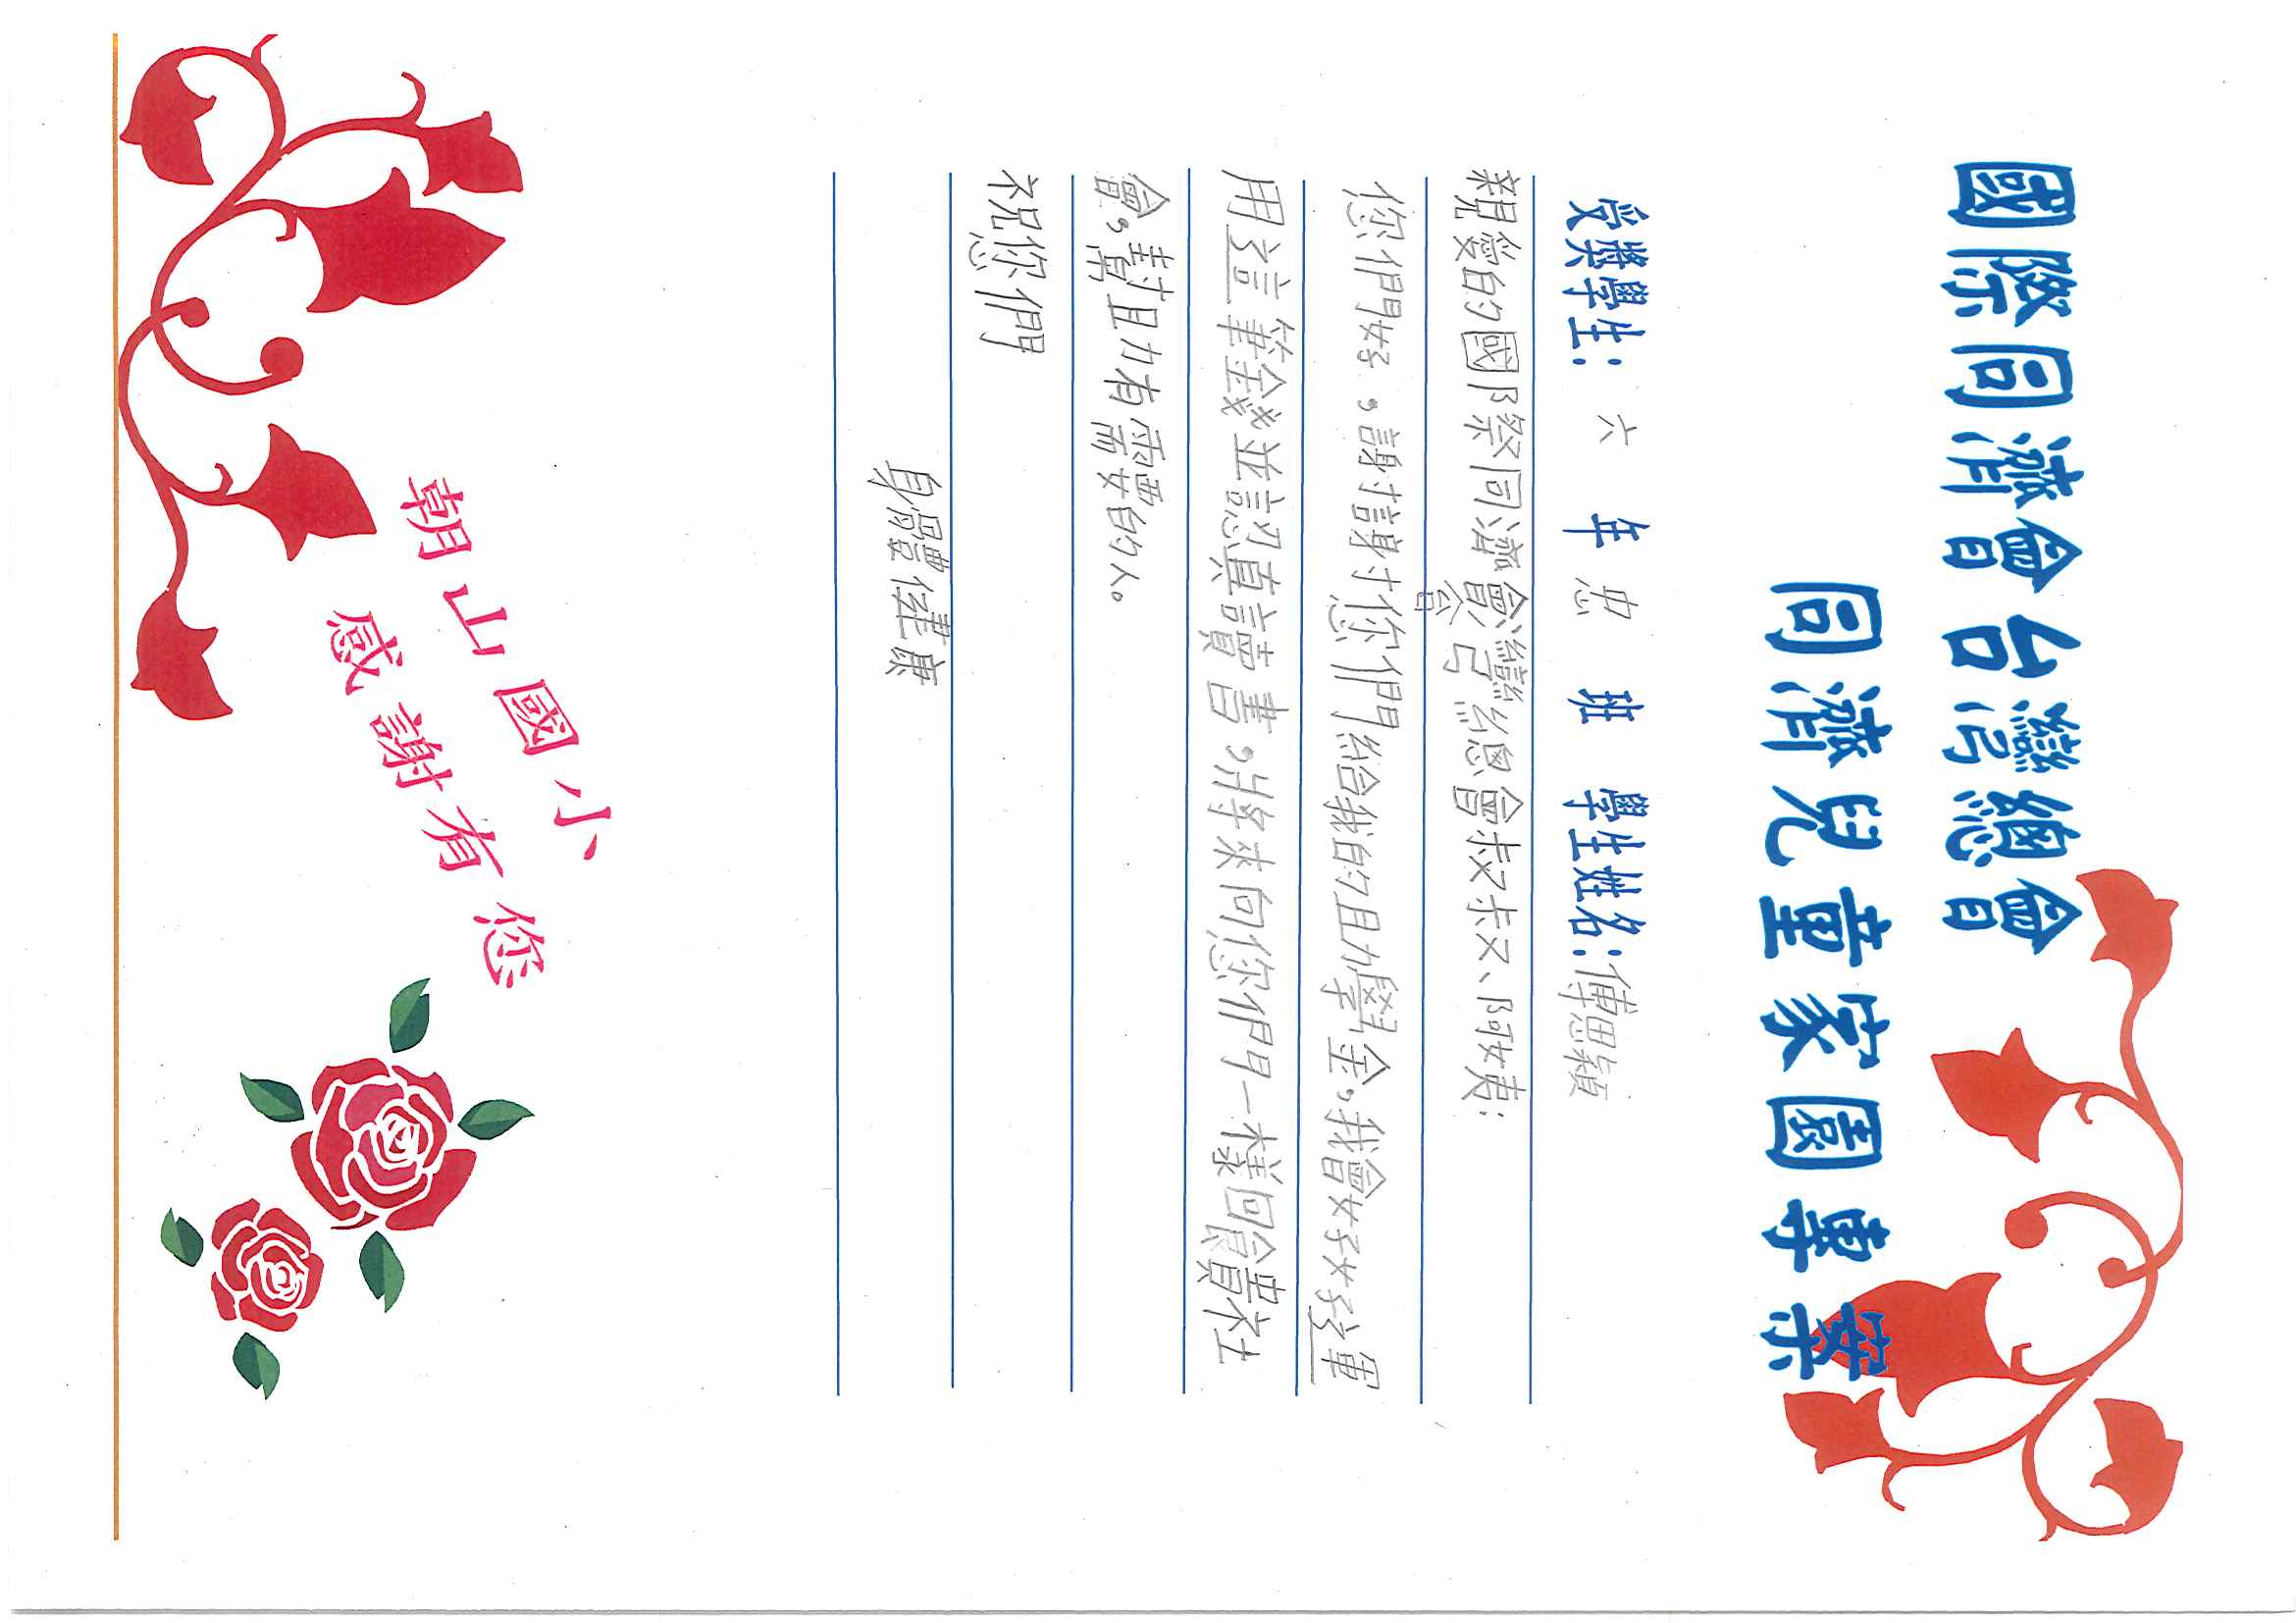 國際同濟會台灣總會
同濟兒童家園專案
受獎學生：六年忠班 學生姓名：傅思穎
親愛的國際同濟會台灣總會叔叔、阿姨：
您們好，謝謝您們給我的助學金，我會好好運
用這筆錢並認真讀書，將來向您們一樣回饋社
會，幫助有需要的人。
祝您們
身體健康
朝山國小
感謝有您